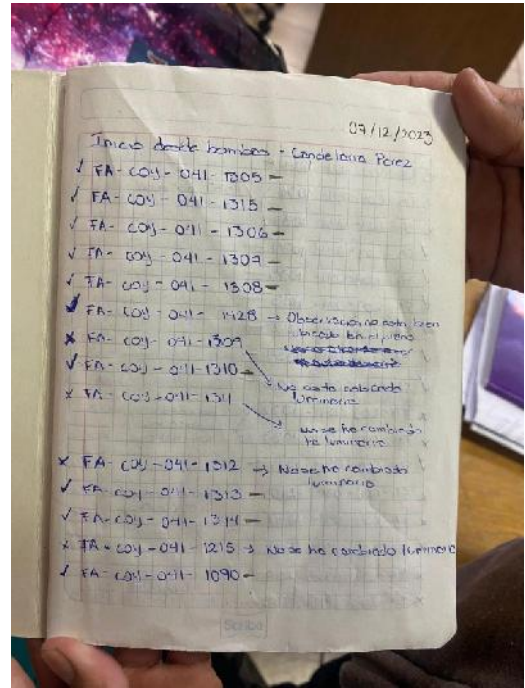 07/12/2023
Inicio desde bombeo - Candelaria Perez
✓ FA - COY - 041 - 1305 -
✓ FA - COY - 041 - 1315 -
✓ FA - COY - 041 - 1306 -
✓ FA - COY - 041 - 1307 -
✓ FA - COY - 041 - 1308 -
✓ FA - COY - 041 - 1428 → Observación no esta bien
ubicado en el plano
x FA - COY - 041 - 1309
✓ FA - COY - 041 - 1310 -
No esta colocado
luminaria
x FA - COY - 041 - 1311
No se ha cambiado
luminaria
x FA - COY - 041 - 1312 → No se ha cambiado
luminaria
✓ FA - COY - 041 - 1313 -
✓ FA - COY - 041 - 1314 -
x FA - COY - 041 - 1215 → No se ha cambiado luminaria
✓ FA - COY - 041 - 1090 -
Scribe